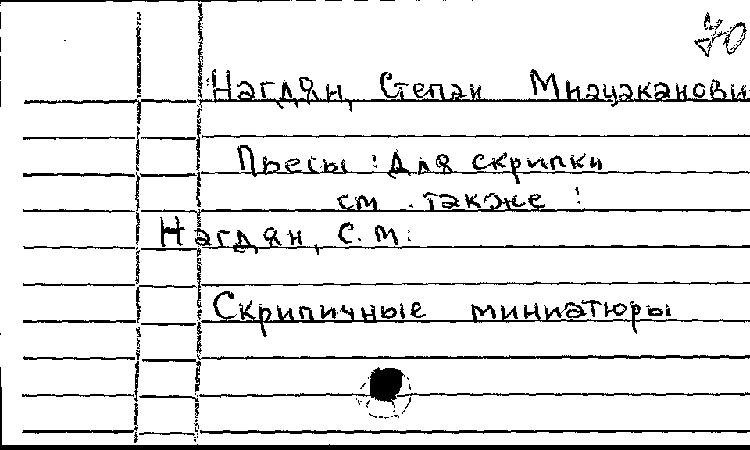 70
Нагдян, Степан Мнацаканови
Пьесы : Для скрипки
см. также :
Нагдян, С. М.
Скрипичные миниатюры